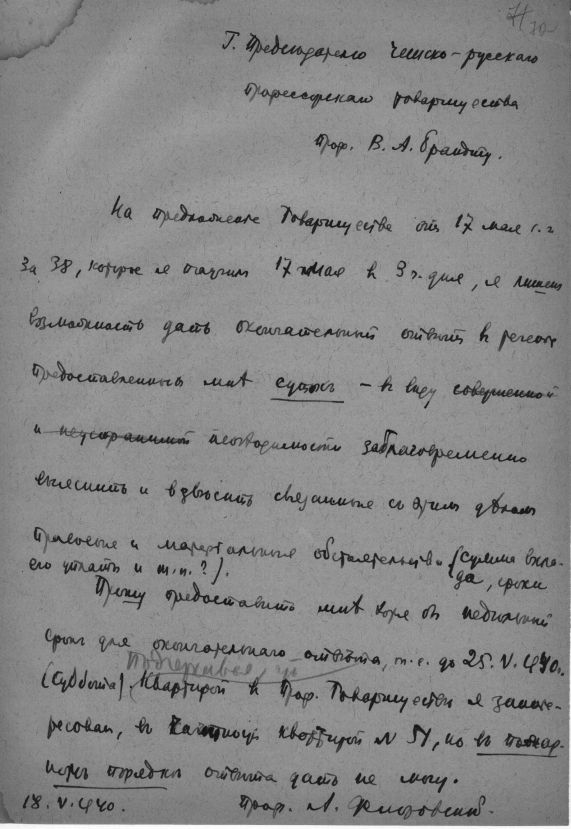 70
Г. Председателю Чешско-русскаго
Профессорскаго товарищества
Проф. В. А. Брандту.
На предложение Товарищества отъ 17 мая с. г.
за 38, которое я получилъ 17 мая в 3 ч. дня, я лишенъ
возможность дать окончательный отвѣтъ в
предоставленныя мнѣ сутокъ – в виду совершенной
и неустранимой необходимости заблаговременно
выяснить и взвѣсить связанные съ этим дѣлом
правовые и матерiальные обстоятельства (сумма вкла-
да, сроки
его уплаты и т.п.?).
Прошу предоставить мнѣ хотя бы недѣльный
срокъ для окончательнаго отвѣта, т. е. до 25. V. 940.
(суббота). Подчеркиваю, что
Квартирой в Проф. Товариществе я заинте-
ресован, въ частности квартирой N 51, но въ пожар-
номъ порядкѣ отвѣта дать не могу.
18. V. 940. Проф. А. Флоровский.